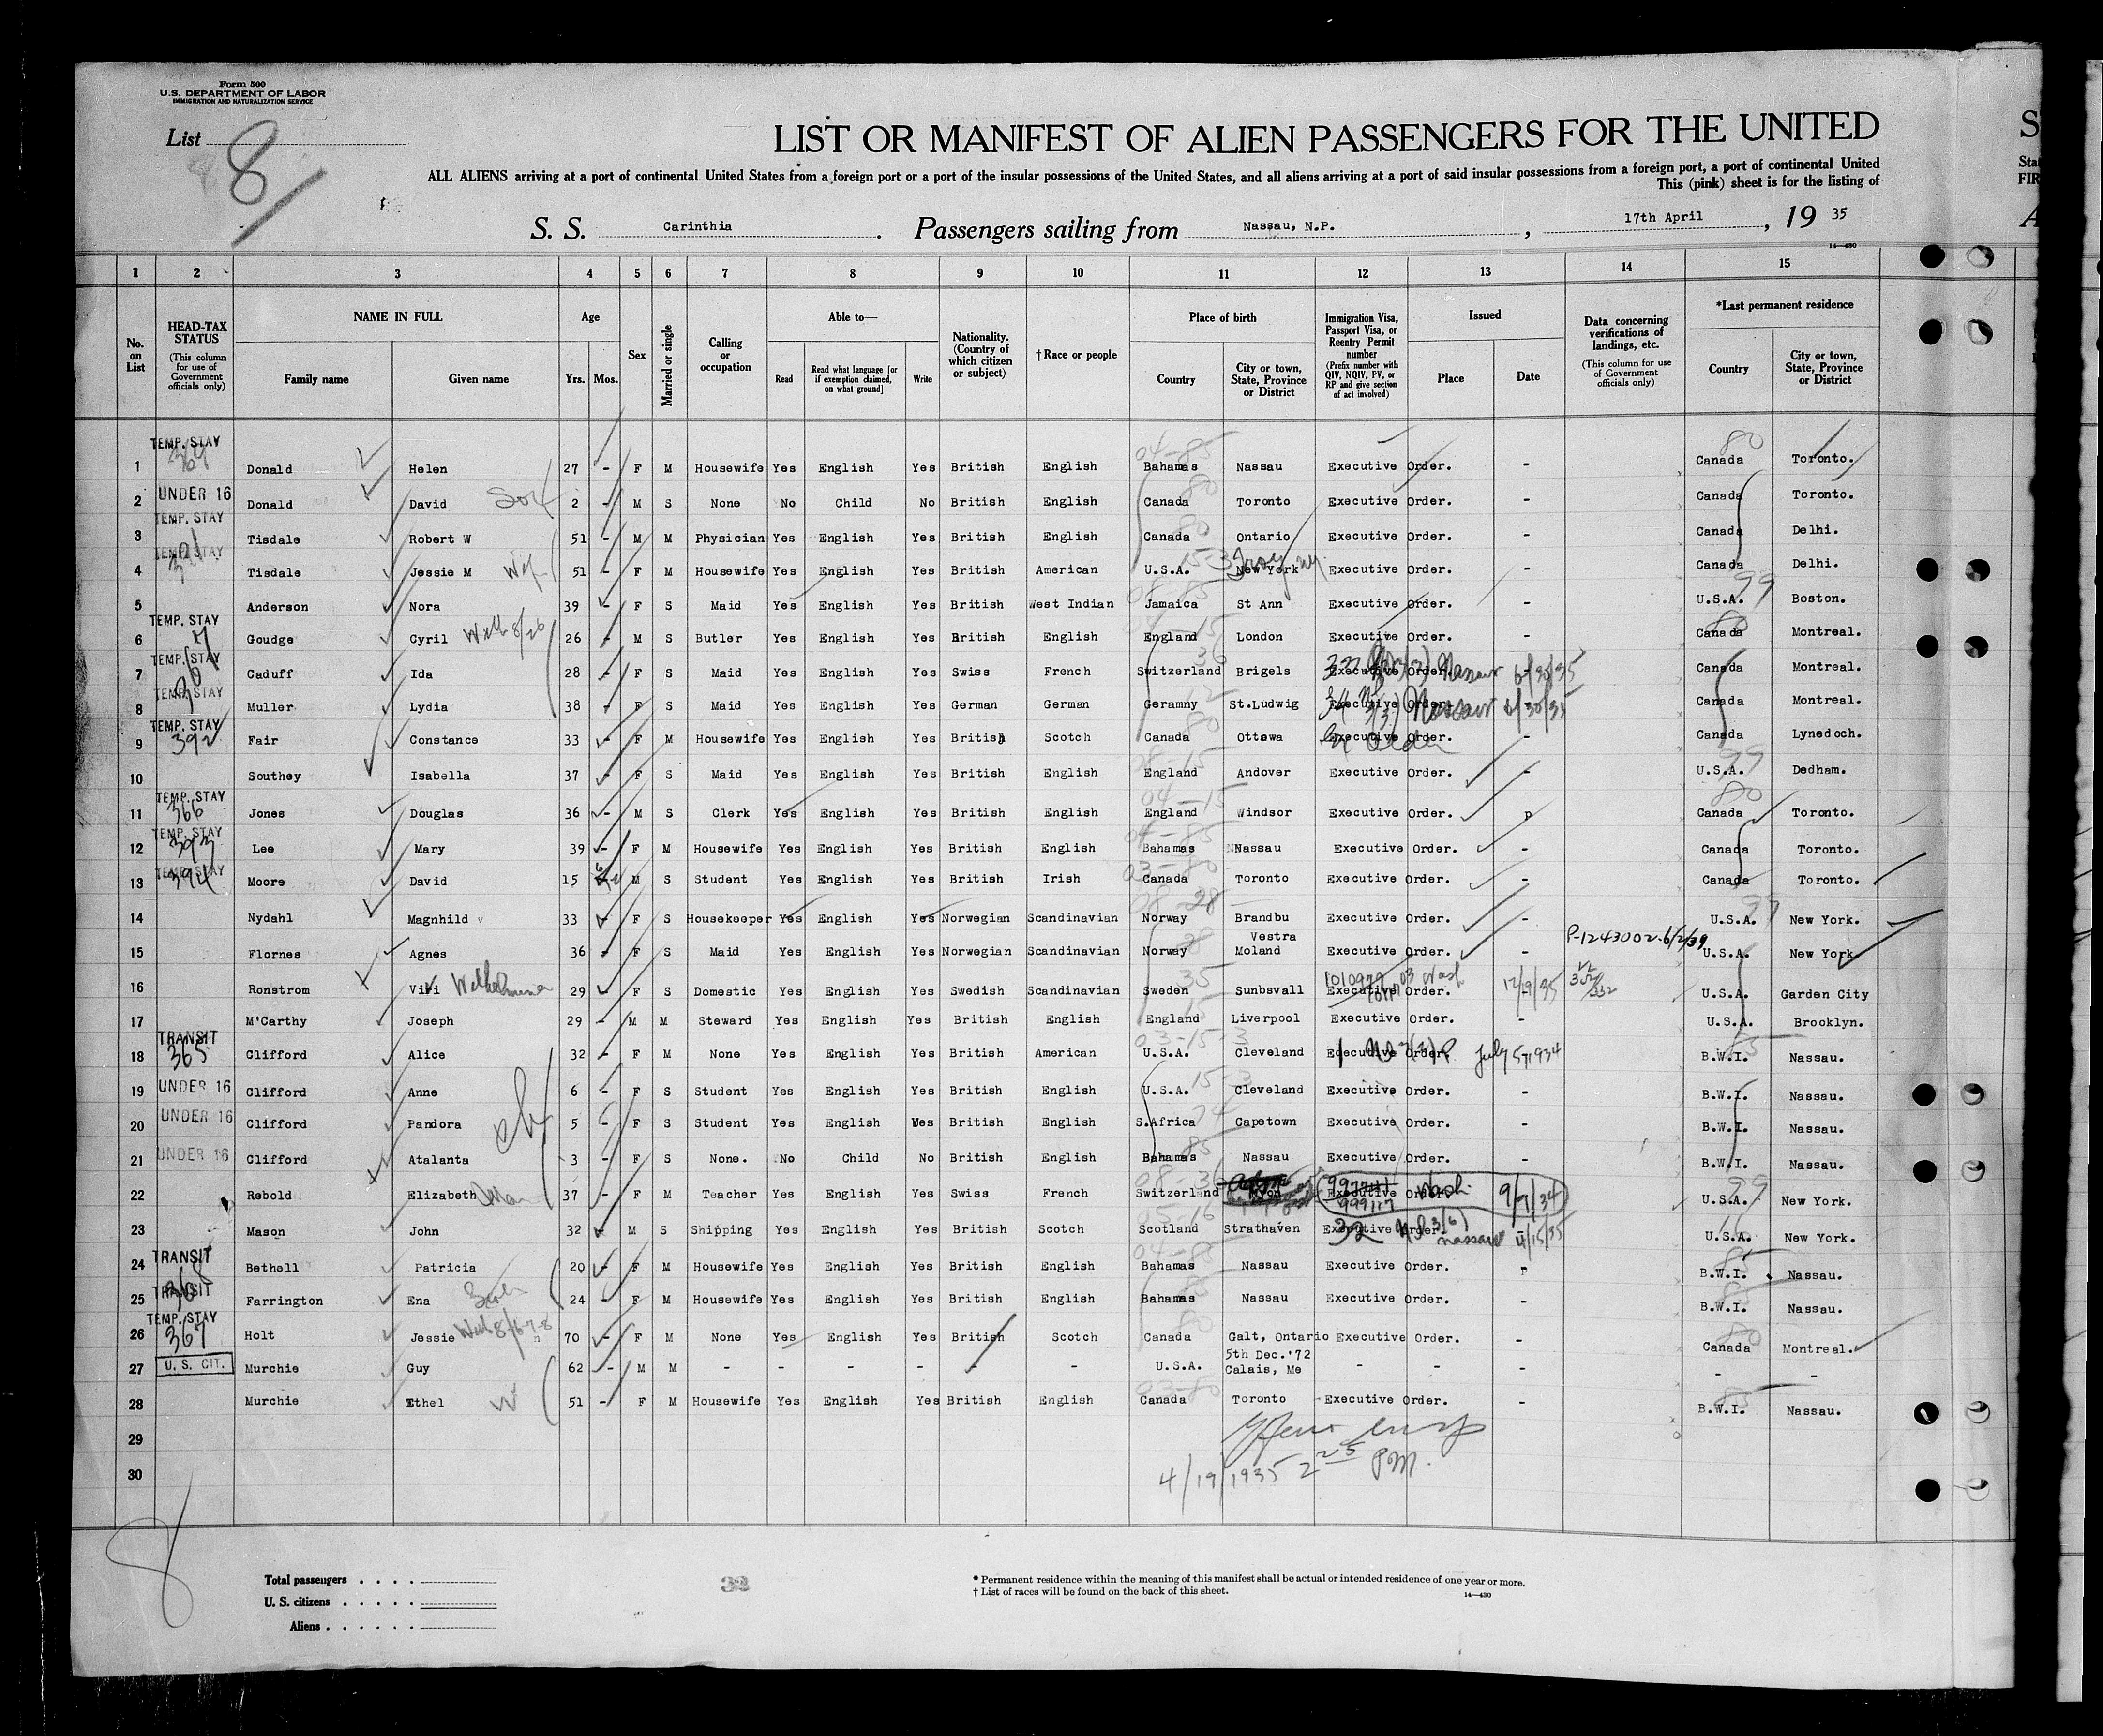 Form 500
U.S. DEPARTMENT OF LABOR
IMMIGRATION AND NATURALIZATION SERVICE
List 8
LIST OR MANIFEST OF ALIEN PASSENGERS FOR THE UNITED
ALL ALIENS arriving at a port of continental United States from a foreign port or a port of the insular possessions of the United States, and all aliens arriving at a port of said insular possessions from a foreign port, a port of continental United
This (pink) sheet is for the listing of
S. S. Carinthia. Passengers sailing from Nassau, N.P., 17th April, 19 35
14—430
1 2 3 4 5 6 7 8 9 10 11 12 13 14 15
No. on List
HEAD-TAX STATUS
(This column for use of Government officials only)
NAME IN FULL
Family name
Given name
Age
Yrs. Mos.
Sex
Married or single
Calling or occupation
Able to—
Read
Read what language [or if exemption claimed, on what ground]
Write
Nationality. (Country of which citizen or subject)
† Race or people
Place of birth
Country
City or town, State, Province or District
Immigration Visa, Passport Visa, or Reentry Permit number
(Prefix number with QIV, NQIV, PV, or RP and give section of act involved)
Issued
Place
Date
Data concerning verifications of landings, etc.
(This column for use of Government officials only)
*Last permanent residence
Country
City or town, State, Province or District
1 TEMP. STAY Donald Helen 27 - F M Housewife Yes English Yes British English 04-85 Bahamas Nassau Executive Order. - 80 Canada Toronto.
2 UNDER 16 Donald David Son 2 - M S None No Child No British English 80 Canada Toronto Executive Order. - Canada Toronto.
3 TEMP. STAY Tisdale Robert W 51 - M M Physician Yes English Yes British English 80 Canada Ontario Executive Order. - Canada Delhi.
4 TEMP. STAY Tisdale Jessie M Wf 51 - F M Housewife Yes English Yes British American 15-3 U.S.A. New York Troy NY. Executive Order. - Canada Delhi.
5 Anderson Nora 39 - F S Maid Yes English Yes British West Indian 08-85 Jamaica St Ann Executive Order. - 99 U.S.A. Boston.
6 TEMP. STAY Goudge Cyril With 8/26 26 - M S Butler Yes English Yes British English 04-15 England London Executive Order. - 80 Canada Montreal.
7 TEMP. STAY Caduff Ida 28 - F S Maid Yes English Yes Swiss French 36 Switzerland Brigels Executive Order. Nassau Canada Montreal.
8 TEMP. STAY Muller Lydia 38 - F S Maid Yes English Yes German German 12 Geramny St.Ludwig Executive Order. Nassau Canada Montreal.
9 TEMP. STAY 392 Fair Constance 33 - F M Housewife Yes English Yes British Scotch 80 Canada Ottawa Executive Order. Ex Order - Canada Lynedoch.
10 Southey Isabella 37 - F S Maid Yes English Yes British English 08-15 England Andover Executive Order. - 99 U.S.A. Dedham.
11 TEMP. STAY 366 Jones Douglas 36 - M S Clerk Yes English Yes British English 04-15 England Windsor Executive Order. 80 Canada Toronto.
12 TEMP. STAY 393 Lee Mary 39 - F M Housewife Yes English Yes British English 04-85 Bahamas NNassau Executive Order. - Canada Toronto.
13 TEMP. STAY 394 Moore David 15 M S Student Yes English Yes British Irish 03-80 Canada Toronto Executive Order. - Canada Toronto.
14 Nydahl Magnhild 33 - F S Housekeeper Yes English Yes Norwegian Scandinavian 08-28 Norway Brandbu Executive Order. - 99 U.S.A. New York.
15 Flornes Agnes 36 - F S Maid Yes English Yes Norwegian Scandinavian 28 Norway Vestra Moland Executive Order. - P-1243002-6/2/39 U.S.A. New York
16 Ronstrom Vivi Wilhelmina 29 - F S Domestic Yes English Yes Swedish Scandinavian 35 Sweden Sunbsvall Executive Order. 1010979 Wash U.S.A. Garden City
17 M'Carthy Joseph 29 - M M Steward Yes English Yes British English 15 England Liverpool Executive Order. - U.S.A. Brooklyn.
18 TRANSIT 365 Clifford Alice 32 - F M None Yes English Yes British American 03-15-3 U.S.A. Cleveland Executive Order. July 5, 1934 85 B.W.I. Nassau.
19 UNDER 16 Clifford Anne 6 - F S Student Yes English Yes British English 15-3 U.S.A. Cleveland Executive Order. - B.W.I. Nassau.
20 UNDER 16 Clifford Pandora ch 5 - F S Student Yes English Yes British English 74 S.Africa Capetown Executive Order. - B.W.I. Nassau.
21 UNDER 16 Clifford Atalanta 3 - F S None. No Child No British English 85 Bahamas Nassau Executive Order. - B.W.I. Nassau.
22 Rebold Elizabeth 37 - F M Teacher Yes English Yes Swiss French 08-36 Switzerland Executive Order. 999117 Wash. 9/7/34 99 U.S.A. New York.
23 Mason John 32 M S Shipping Yes English Yes British Scotch 05-16 Scotland Strathaven Executive Order. 32 3(6) Nassau 4/15/35 U.S.A. New York.
24 TRANSIT Bethell Patricia 20 - F M Housewife Yes English Yes British English 04-85 Bahamas Nassau Executive Order. 85 B.W.I. Nassau.
25 TRANSIT Farrington Ena 24 - F M Housewife Yes English Yes British English 85 Bahamas Nassau Executive Order. - 85 B.W.I. Nassau.
26 TEMP. STAY 367 Holt Jessie With 8/6-7-8 70 - F M None Yes English Yes British Scotch 80 Canada Galt, Ontario Executive Order. - 80 Canada Montreal.
27 U. S. CIT. Murchie Guy 62 - M M - - - - - - U.S.A. 5th Dec.'72 Calais, Me - - - -
28 Murchie Ethel W 51 - F M Housewife Yes English Yes British English 03-80 Canada Toronto Executive Order. - 85 B.W.I. Nassau.
29
30
4/19/1935 2 25 PM.
8
Total passengers
U. S. citizens
Aliens
33
* Permanent residence within the meaning of this manifest shall be actual or intended residence of one year or more.
† List of races will be found on the back of this sheet.
14—430